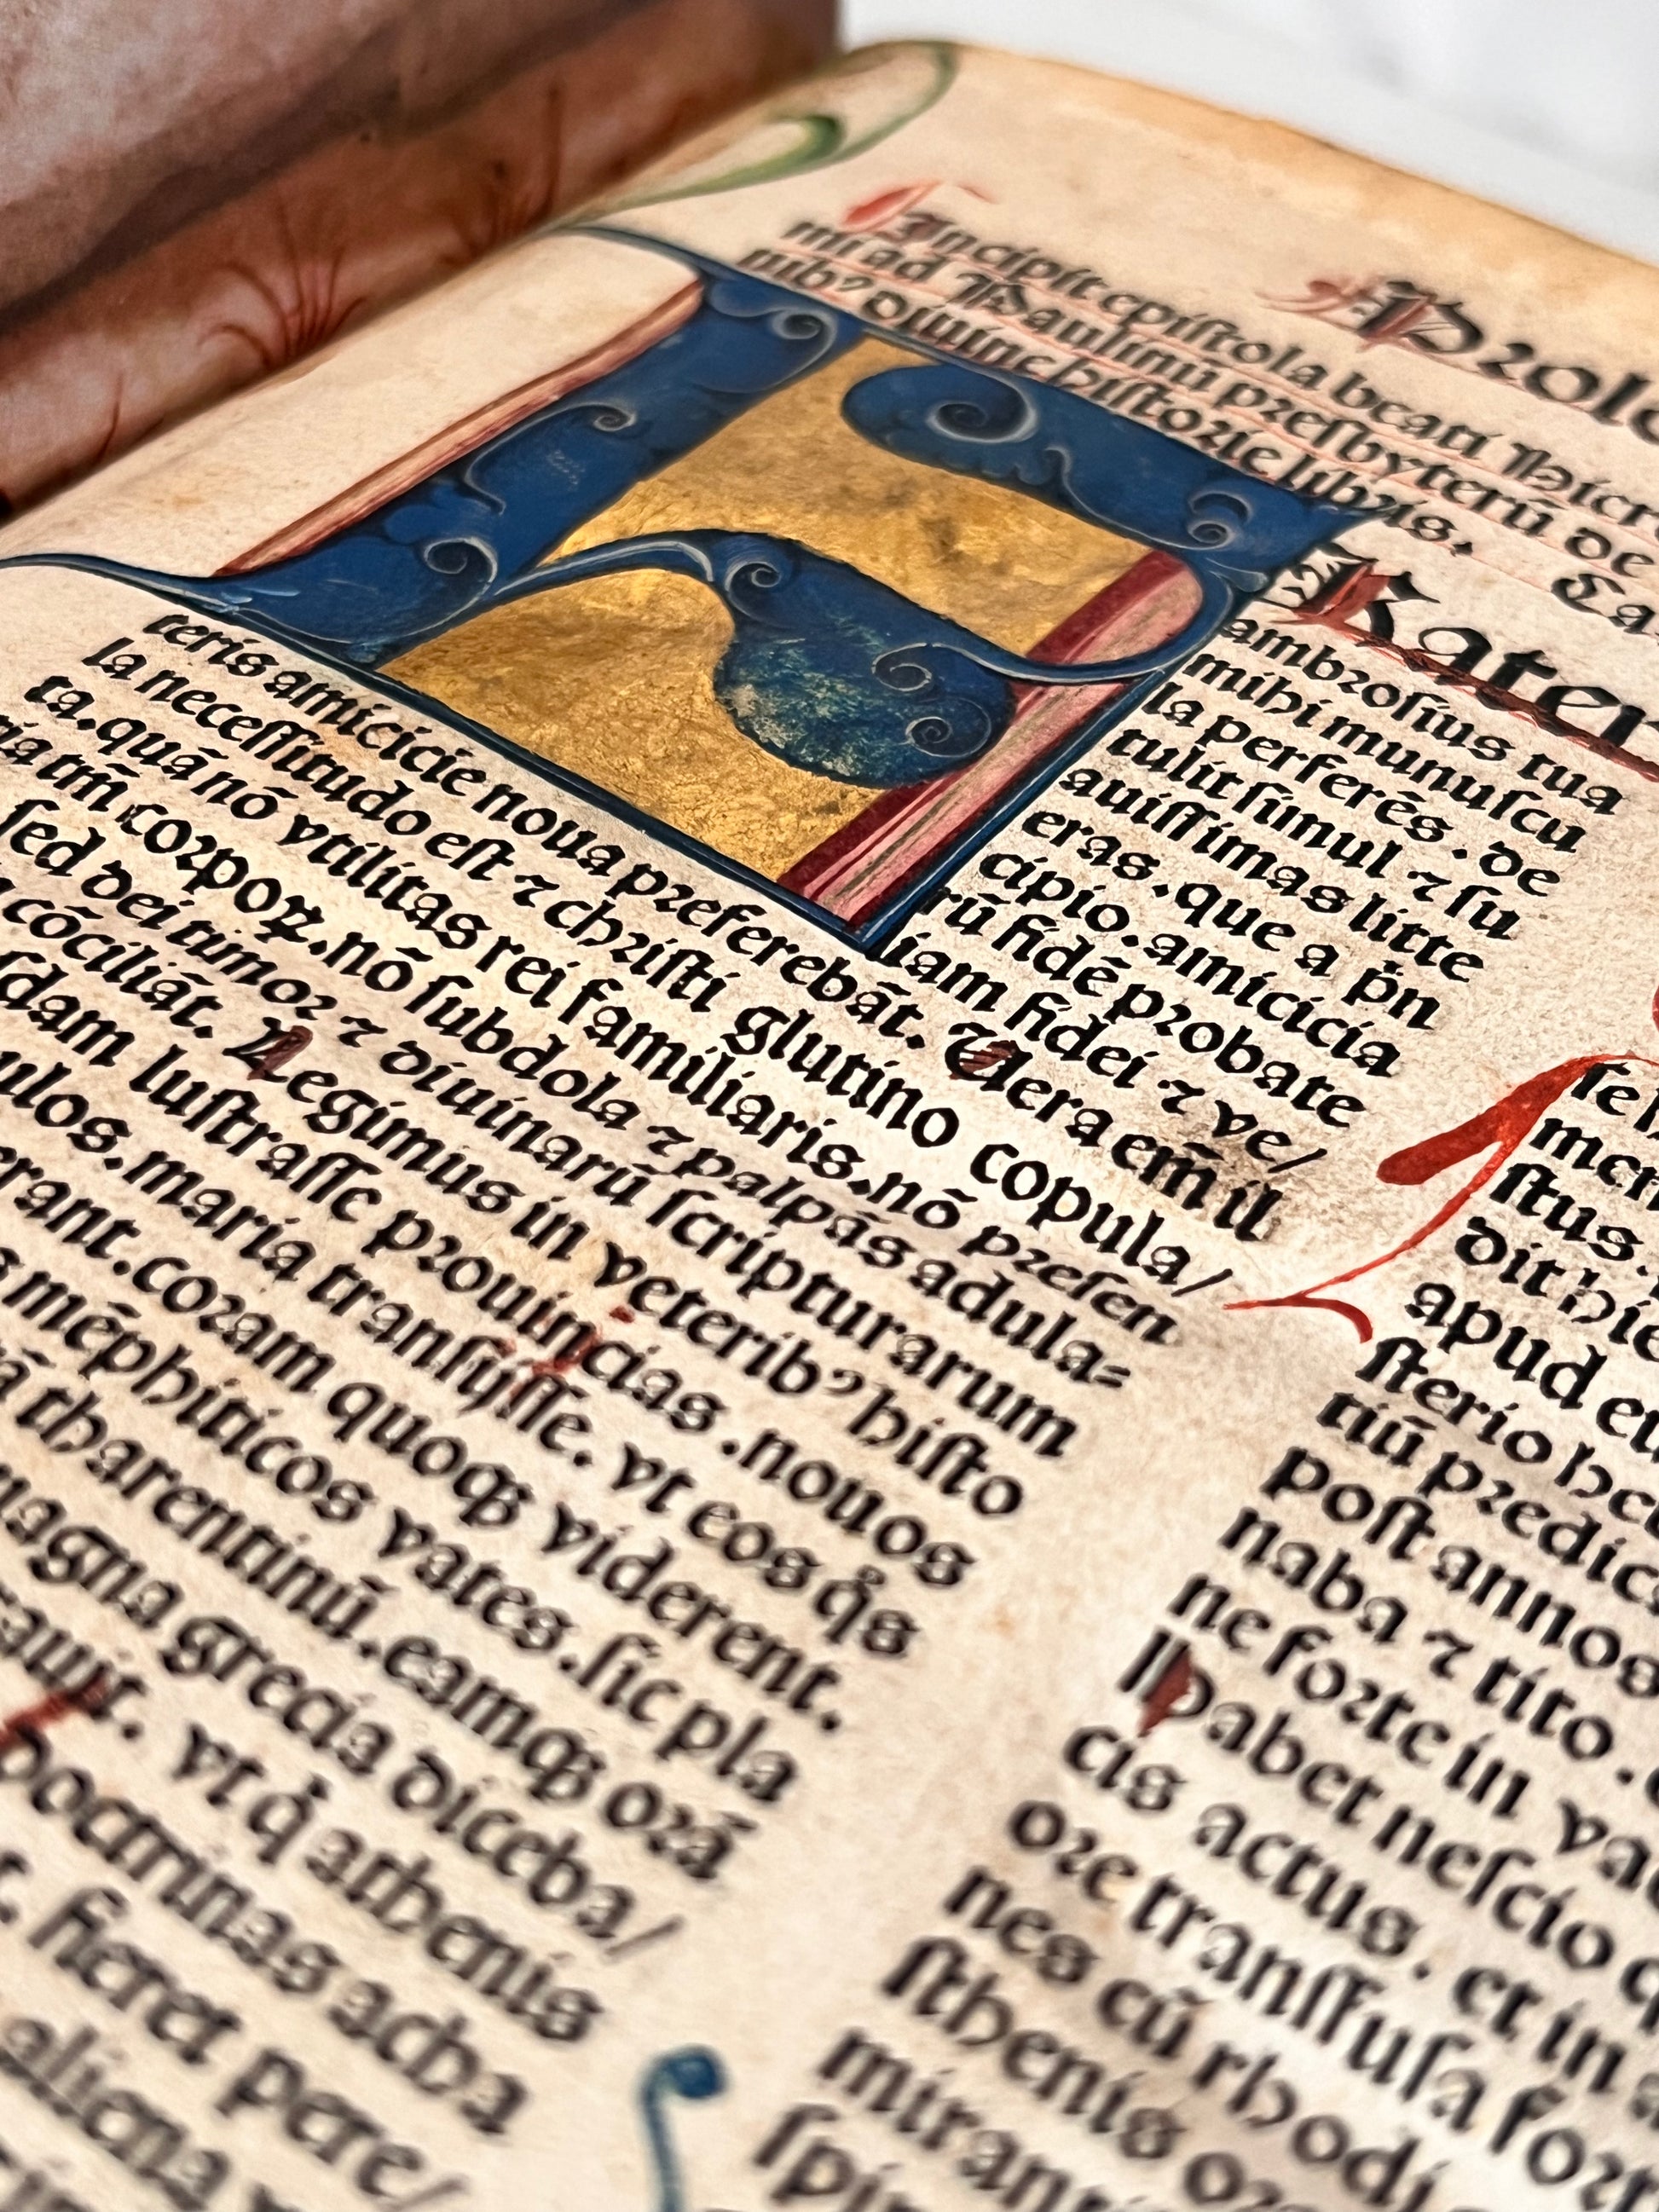 Prolo
Incipit epistola beati Hiero
nimi ad Paulinū presbyterū de
nibꝰ diuine historie libris. Ca
Frater
ambrosius tua
mihi munuscu
la perferēs. de
tulit simul ⁊ su
auissimas litte
eras. que a p̄n
cipio. amicicia
rū fidē probate
iam fidei ⁊ ve/
teris amicicie noua preferebāt. Uera em̄ il
la necessitudo est ⁊ christi glutino copula/
ta. quā nō vtilitas rei familiaris. nō presen
ria tm̄ corpoꝝ. nō subdola ⁊ palpās adula=
sed dei timor ⁊ diuinarū scripturarum
cōciliāt. Legimus in veteribꝰ histo
sdam lustrasse prouincias. nouos
ulos. maria transijsse. vt eos q̊s
erant. coram quoqꝫ viderent.
s mēphiticos vates. sic pla
tharentinū. eamqꝫ orā
magna grecia diceba/
rauit. vt q̇ athenis
doctrinas acha
fieret pere/
aliena
se
men
stus.
dit hie
apud eu
sterio
riū predic
post annos
naba ⁊ tito.
ne forte in vac
Habet nescio q
cis actus. et in a
ore transfusa fort
nes cū rhodi
sthenis
miran
spi